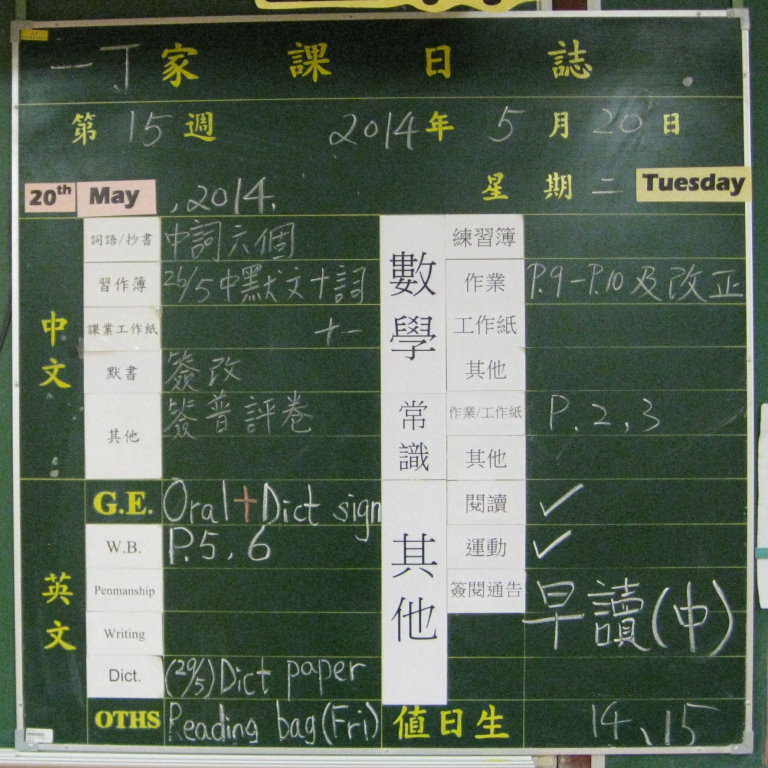 一丁家課日誌
第15週 2014年5月20日
20th May, 2014. 星期二 Tuesday
中文
詞語/抄書 中詞六個
習作簿 26/5中默文十詞
課業工作紙 十一
默書 簽改
其他 簽普評卷
英文
G.E. Oral+Dict sign
W.B. P.5,6
Penmanship
Writing
Dict. (29/5)Dict paper
OTHS Reading bag(Fri)
數學
練習簿
作業 P.9-P.10及改正
工作紙
其他
常識
作業/工作紙 P.2,3
其他
其他
閱讀 ✓
運動 ✓
簽閱通告 早讀(中)
值日生 14、15